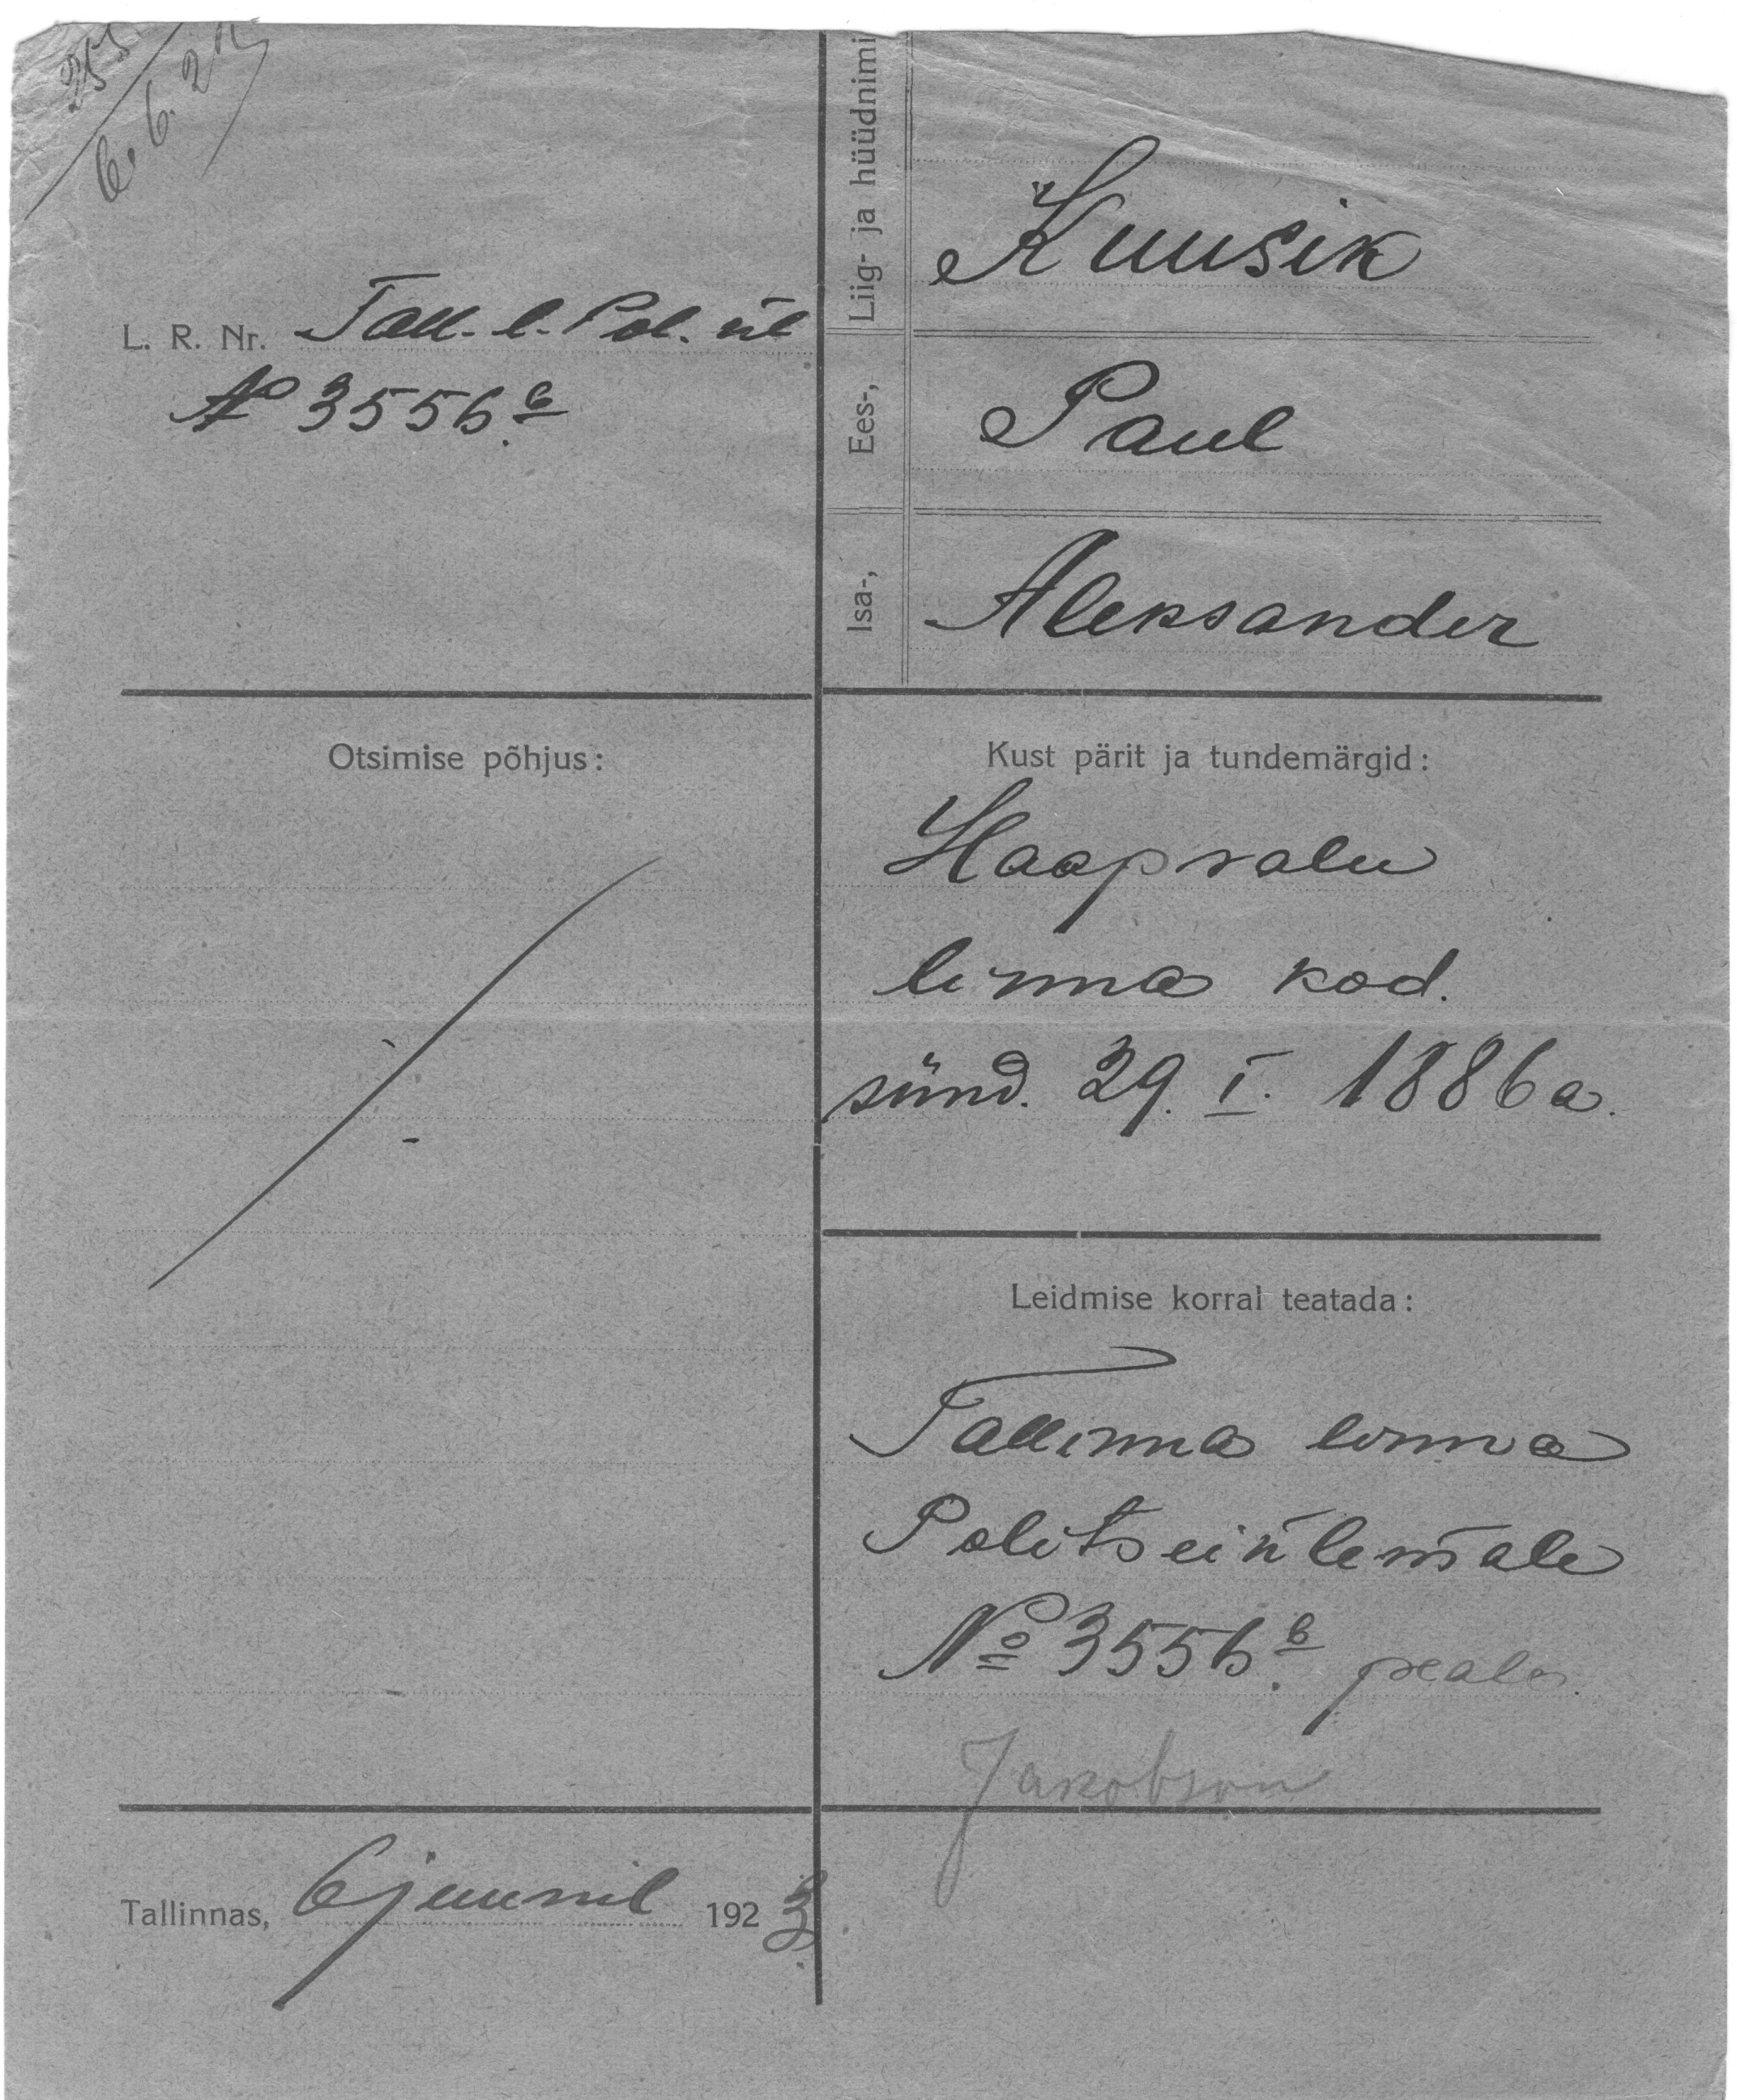 6. 6. 2
L. R. Nr. Tall. l. Pol. ül
№ 3556 b
Liig- ja hüüdnimi
Kuusik
Ees-,
Paul
Isa-,
Aleksander
Otsimise põhjus:
Kust pärit ja tundemärgid:
Haapsalu
linna kod.
sünd. 29. I. 1886 a.
Leidmise korral teatada:
Tallinna linna
Politseiülemale
№ 3556 b peale.
Jakobson
Tallinnas, 6 juunil 1923